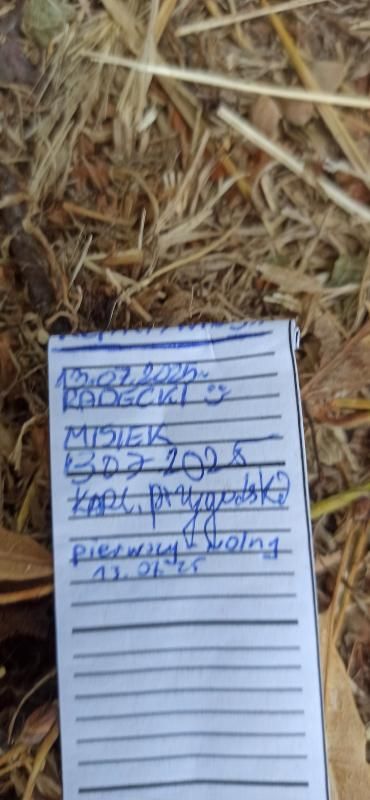 13.07.2025r.
RADECKI
MISIEK
13 07 2025
KAROL. przygodzki
pierwszy - wolny
13.07.25